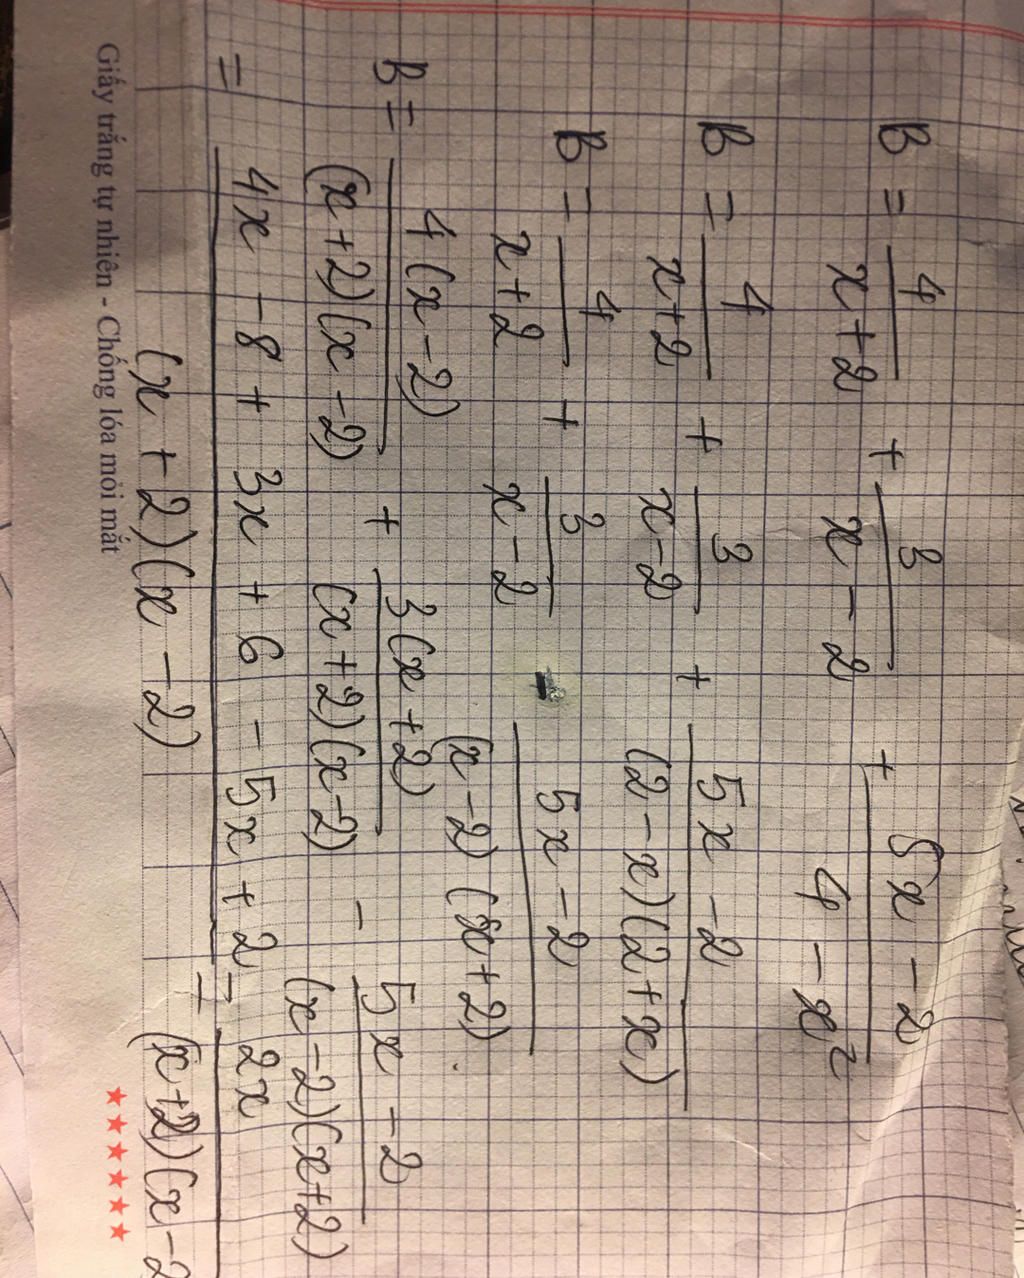 B = 4/(x+2) + 3/(x-2) + (5x-2)/(4-x²)
B = 4/(x+2) + 3/(x-2) + (5x-2)/((2-x)(2+x))
B = 4/(x+2) + 3/(x-2) - (5x-2)/((x-2)(x+2)).
B = 4(x-2)/((x+2)(x-2)) + 3(x+2)/((x+2)(x-2)) - (5x-2)/((x-2)(x+2))
= (4x-8+3x+6-5x+2)/((x+2)(x-2)) = 2x/((x+2)(x-2
Giấy trắng tự nhiên - Chống lóa mỏi mắt ★★★★★★